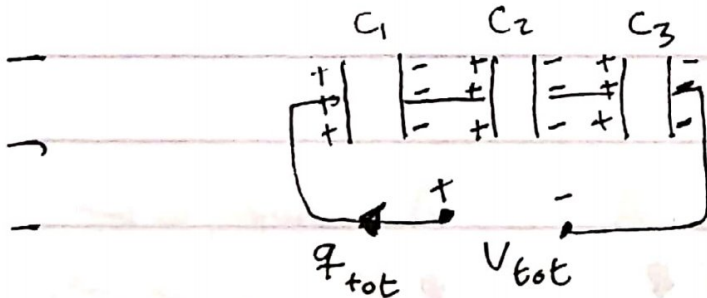 C₁ C₂ C₃
+ - + - + -
+ - + - + -
+ - + - + -
+ -
q_tot V_tot